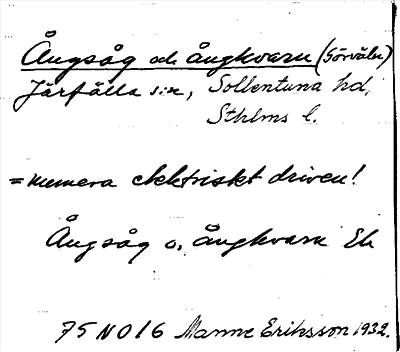 Ångsåg och ångkvarn (Görväln)
Järfälla sn, Sollentuna hd,
Sthlms l.
= numera elektriskt driven!
Ångsåg o. ångkvarn Ek
75 NO16 Manne Eriksson 1932.